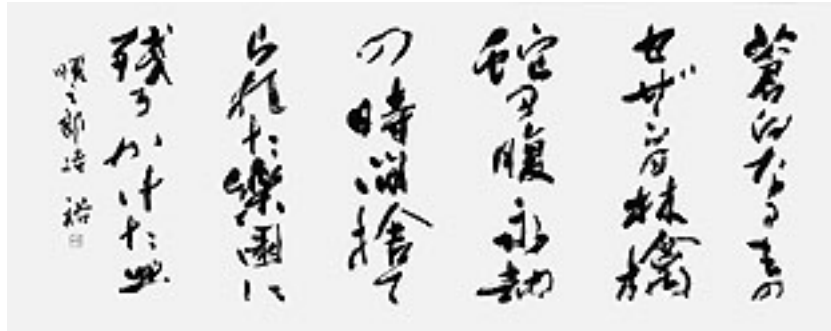 蒼白なるもの
セザンの林檎
蛇の腹永劫
の時間捨て
られた楽園に
残るかけた皿
順三郎詩 裕